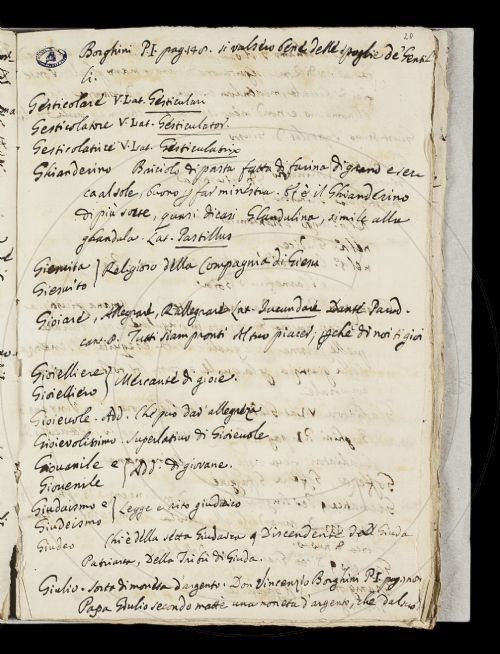 20
Borghini P. I. pag. 148. si valsero bene delle spoglie de' Gentili
li.
Gesticolare V. Lat. Gesticulari
Gesticolatore V. Lat. Gesticulator.
Gesticolatrice V. Lat. Gesticulatrix
Ghianderino di pasta fatta di farina di grano e secca
al sole, buono p far minestra. Et è il Ghianderino
di più sorte, quasi dicasi Glandulina, simile alla
ghiandula. Lat. Pastillus
Giesuita
Giesuito } Religioso della Compagnia di Giesu
Gioiare, Allegrare, Rallegrare Lat. Iucundare Dante Parad.
cant. 8. Tutti siam pronti Al tuo piacer, pche di noi ti gioi
Gioielliere
Gioielliero } Mercante di gioie.
Gioievole. Add. Che può dar allegrezza
Gioievolissimo. Superlativo di Gioievole
Giovanile e
Giovenile } Add. di giovane.
Giudaismo e
Giudeismo } Legge e rito giudaico
Giudeo Chi è della setta Giudaica o Discendente del Giuda
Patriarca, Della Tribù di Giuda.
Giulio. Sorta di moneta d'argento. Don Vincenzio Borghini P. I. pag.
Papa Giulio secondo una moneta d'argento, che dal suo